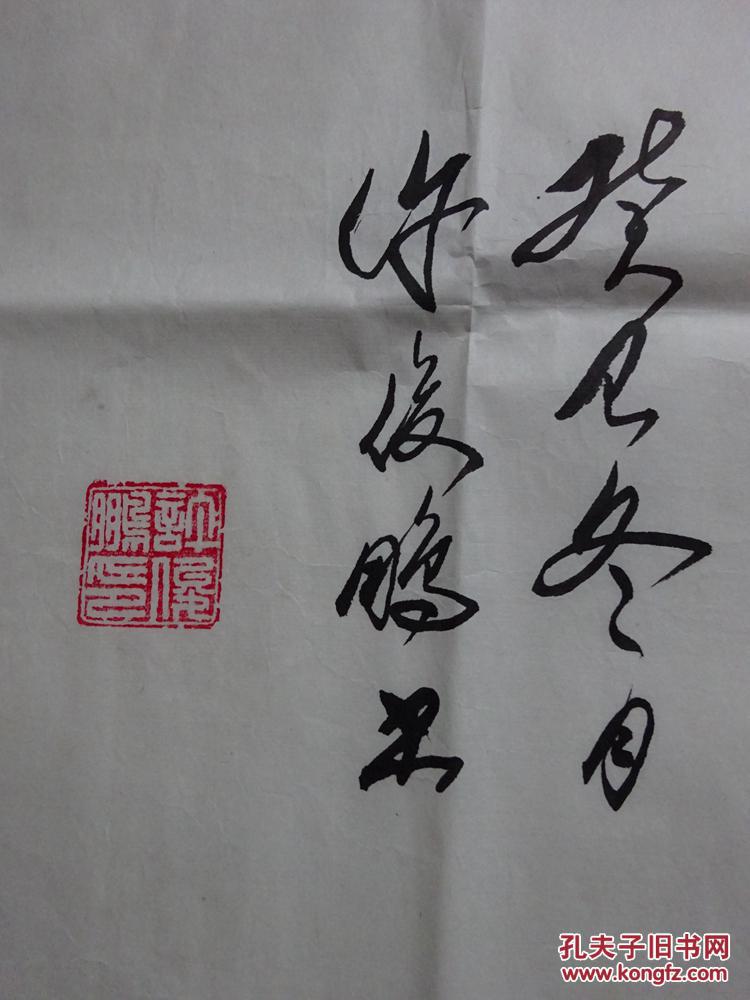 癸巳冬月
许俊鹏
許俊鵬印
孔夫子旧书网
www.kongfz.com